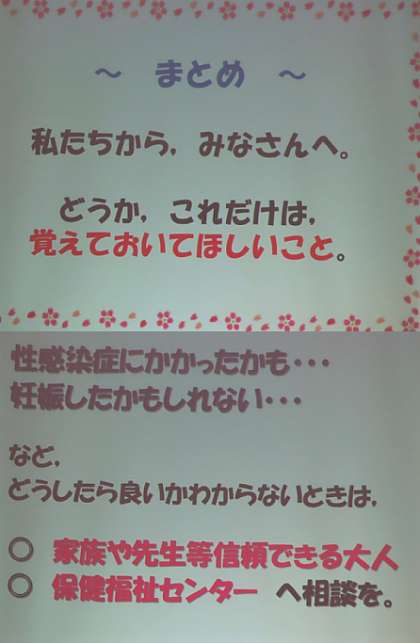 ～ まとめ ～
私たちから，みなさんへ。
どうか，これだけは，
覚えておいてほしいこと。
性感染症にかかったかも・・・
妊娠したかもしれない・・・
など，
どうしたら良いかわからないときは，
○ 家族や先生等信頼できる大人
○ 保健福祉センター へ相談を。